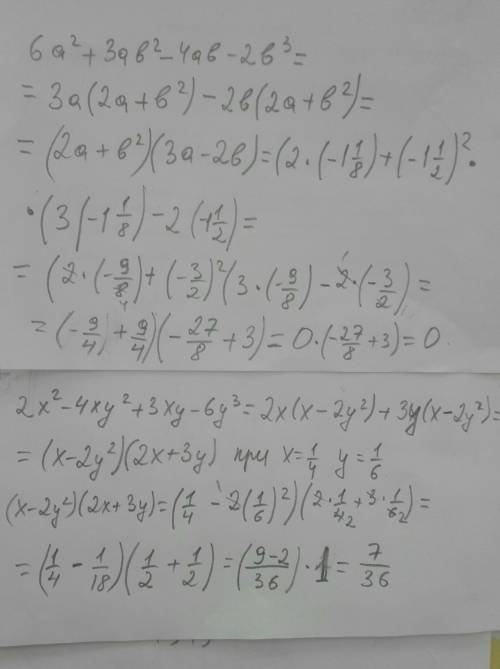 6a² + 3ab² - 4ab - 2b³ =
= 3a(2a + b²) - 2b(2a + b²) =
= (2a + b²)(3a - 2b) = (2 · (-1 1/8) + (-1 1/2)² ·
· (3 (-1 1/8) - 2 (-1 1/2) =
= (2 · (-9/8) + (-3/2)² (3 · (-9/8) - 2 · (-3/2) =
= (-9/4 + 9/4)(-27/8 + 3) = 0 · (-27/8 + 3) = 0
2x² - 4xy² + 3xy - 6y³ = 2x(x - 2y²) + 3y(x - 2y²) =
= (x - 2y²)(2x + 3y) при x = 1/4 y = 1/6
(x - 2y²)(2x + 3y) = (1/4 - 2(1/6)²)(2 · 1/4 + 3 · 1/6) =
= (1/4 - 1/18)(1/2 + 1/2) = (9-2/36) · 1 = 7/36